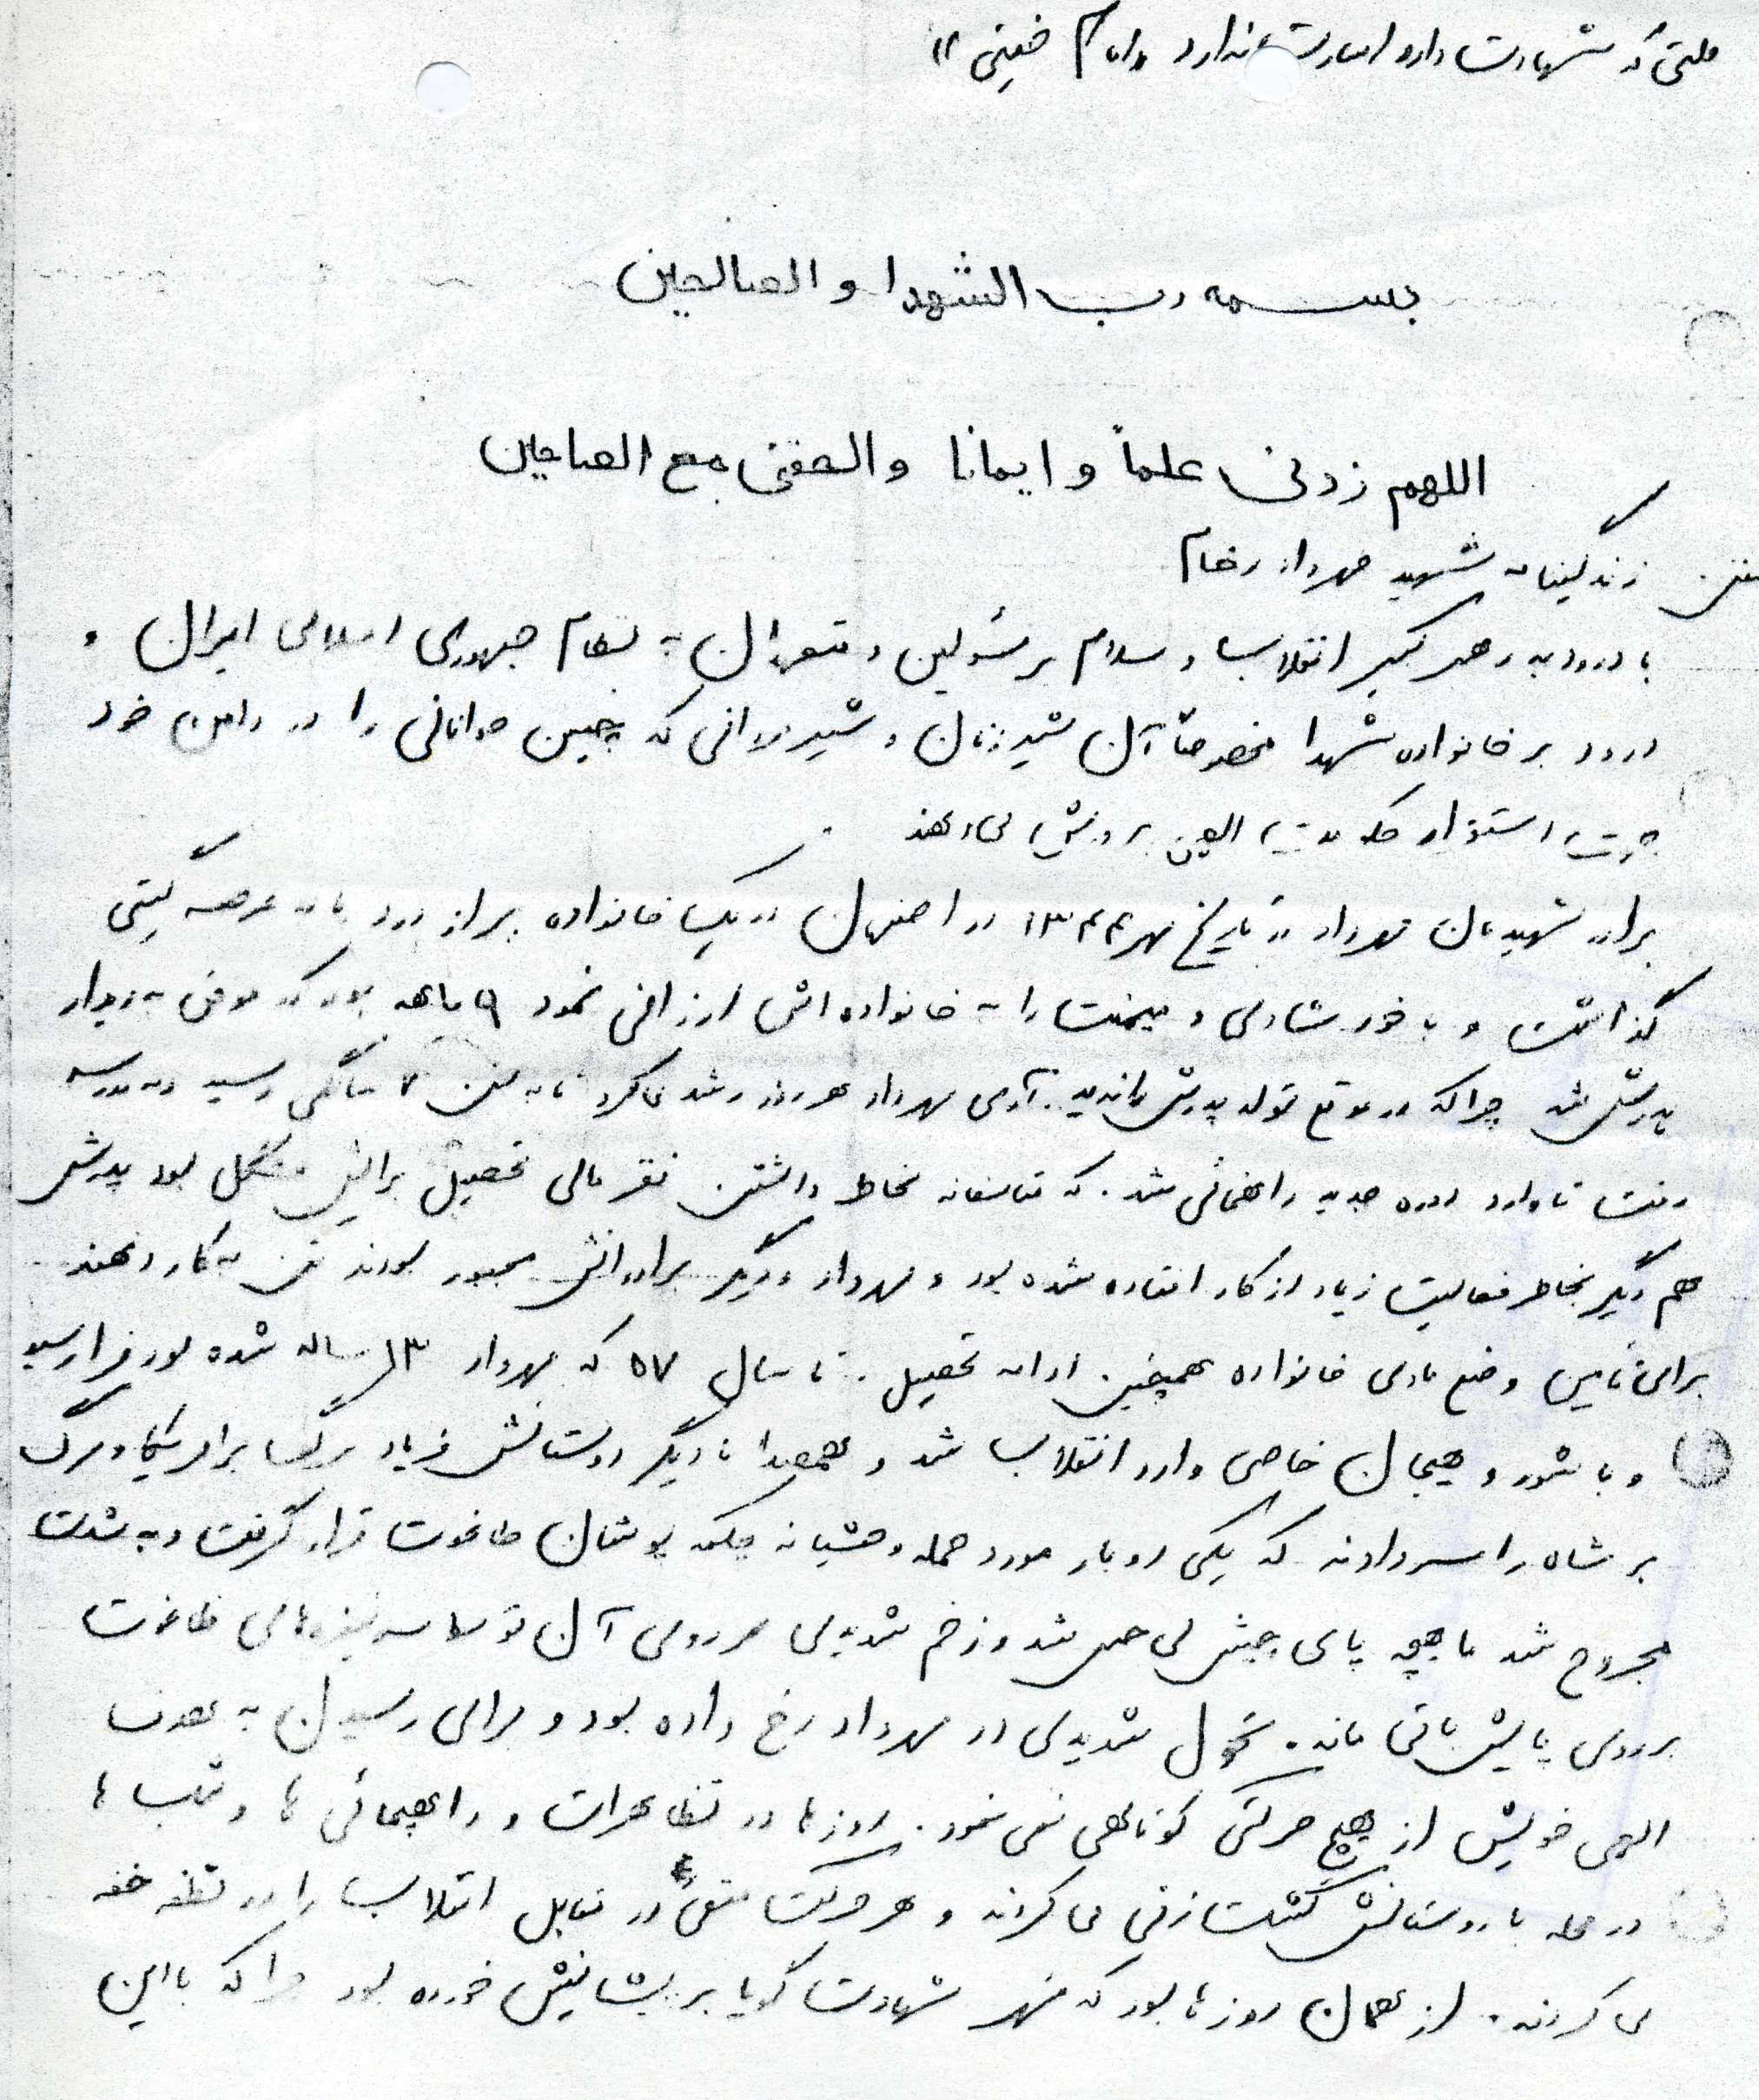 ملتی که شهادت دارد اسارت ندارد «امام خمینی»
بسمه رب الشهدا و الصالحین
اللهم زدنی علماً و ایمانا و الحقنی بع الصالحین
متن زندگینامه شهید مهرداد
با درود به رهبر کبیر انقلاب و سلام بر مسئولین و متعهدان به نظام جمهوری اسلامی ایران و
درود بر خانواده شهدا مخصوصاً آن شیرزنان و شیرمردانی که چنین جوانانی را در دامن خود
جهت استقرار حکومت الهی پرورش می‌دهند .
برادر شهیدمان مهرداد در تاریخ مهر ۱۳۴۴ در اصفهان در یک خانواده پر از درد پا به عرصه گیتی
گذاشت و با خود شادی و میمنت را به خانواده اش ارزانی نمود ۹ ماهه بود که موفق به دیدار
پدرش شد چرا که در موقع تولد پدرش را ندید . آری مهرداد هر روز رشد می کرد تا به سن ۷ سالگی رسید و به مدرسه
رفت تا وارد دوره جدید راهنمائی شد . که متاسفانه بخاطر داشتن فقر مالی تحصیل برایش مشکل بود پدرش
هم دیگر بخاطر فعالیت زیاد از کار افتاده شده بود و مهرداد و دیگر برادرانش مجبور بودند تن به کار دهند
برای تامین وضع مادی خانواده همچنین ادامه تحصیل . تا سال ۵۷ که مهرداد ۱۳ ساله شده بود فرا رسید
و با شور و هیجان خاصی وارد انقلاب شد و همصدا با دیگر دوستانش فریاد مرگ بر امریکا و مرگ
بر شاه را سر دادند که یکی دو بار مورد حمله وحشیانه چکمه پوشان طاغوت قرار گرفت و به شدت
مجروح شد ماهیچه پای چپش بی حس شد و زخم شدیدی بر روی آن توسط سرنیزه‌های طاغوت
بر روی پایش باقی ماند . تحول شدیدی در مهرداد رخ داده بود و برای رسیدن به هدف
الهی خویش از هیچ حرکتی کوتاهی نمی نمود . روزها در تظاهرات و راهپیمائی ها و شب ها
در محله با دوستانش گشت زنی می کردند و هر حرکت منفی در مقابل انقلاب را در نطفه خفه
می کردند . از همان روزها بود که مهر شهادت گویا بر پیشانیش خورده بود چرا که با این